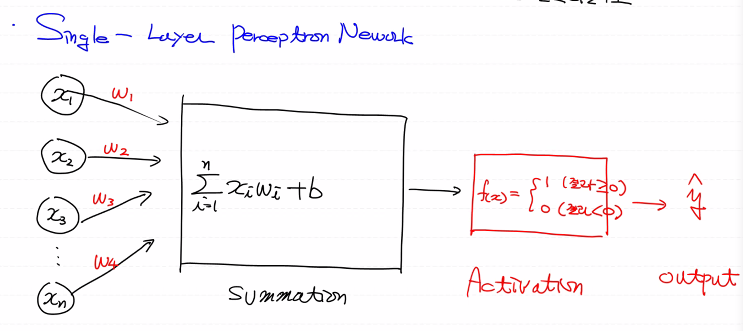 · Single-Layer Perceptron Nework
x₁ w₁
x₂ w₂
x₃ w₃
⋮ w₄
xₙ
n
∑ xᵢwᵢ + b
i=1
Summation
f(x) = { 1 (≥0)
0 (<0)
Activation
ŷ
output